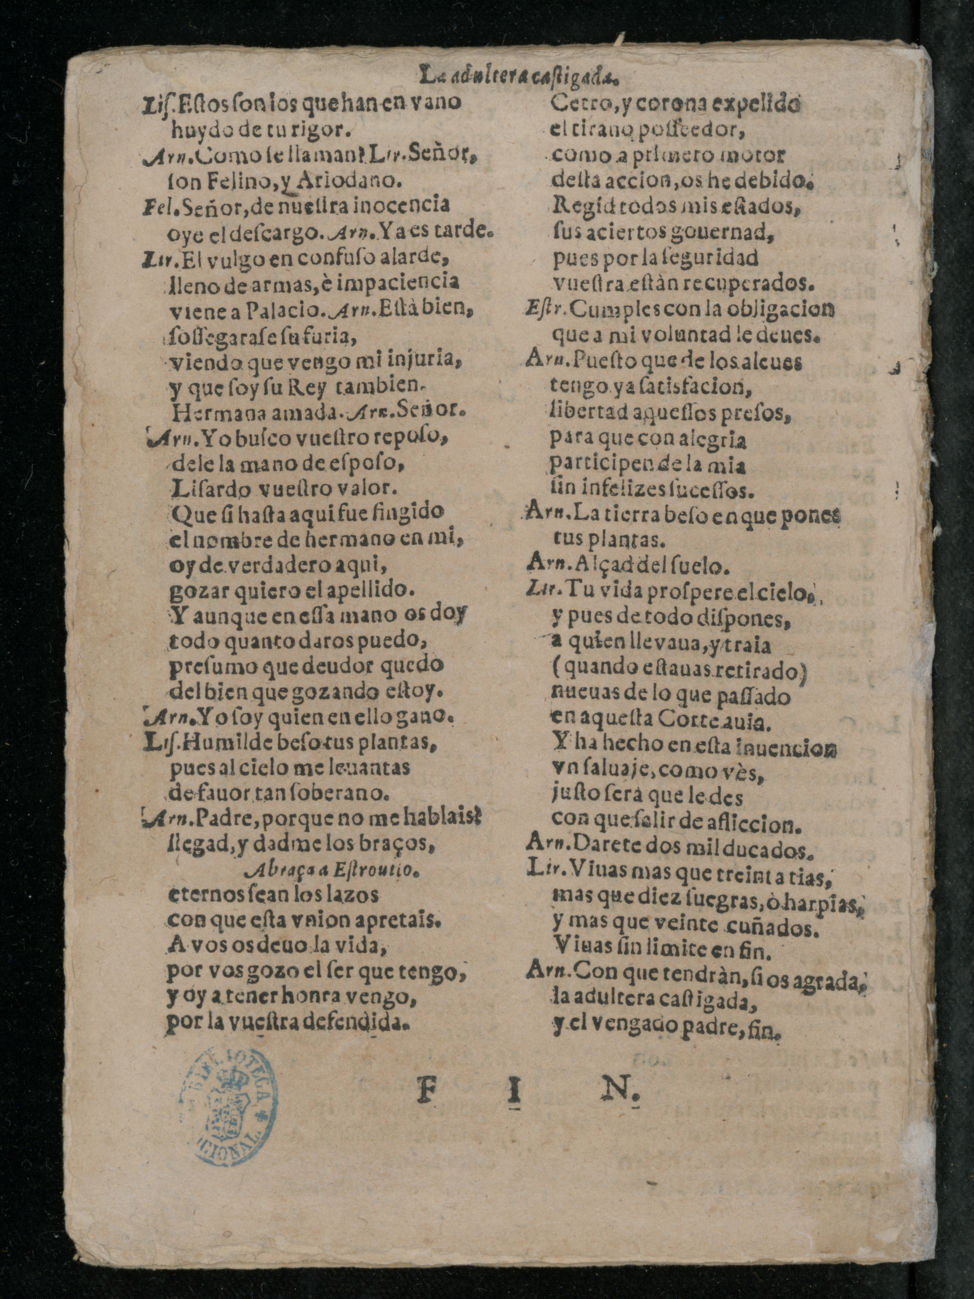 La adultera castigada.
Lis. Eſtos ſon los que han en vano
huydo de tu rigor.
Arn. Como ſe llaman? Lir. Señor,
ſon Felino, y Ariodano.
Fel. Señor, de nueſtra inocencia
oye el deſcargo. Arn. Ya es tarde.
Lir. El vulgo en confuſo alarde,
lleno de armas, è impaciencia
viene a Palacio. Arn. Eſtà bien,
ſoſſegaraſe ſu furia,
viendo que vengo mi injuria,
y que ſoy ſu Rey tambien.
Hermana amada. Arn. Señor.
Arn. Yo buſco vueſtro repoſo,
dele la mano de eſpoſo,
Liſardo vueſtro valor.
Que ſi haſta aqui fue fingido
el nombre de hermano en mi,
oy de verdadero aqui,
gozar quiero el apellido.
Y aunque en eſſa mano os doy
todo quanto daros puedo,
preſumo que deudor quedo
del bien que gozando eſtoy.
Arn. Yo ſoy quien en ello gano.
Liſ. Humilde beſo tus plantas,
pues al cielo me leuantas
de fauor tan ſoberano.
Arn. Padre, porque no me hablais?
llegad, y dadme los braços,
Abraça a Eſtroutio.
eternos ſean los lazos
con que eſta vnion apretais.
A vos os deuo la vida,
por vos gozo el ſer que tengo,
y oy a tener honra vengo,
por la vueſtra defendida.
Cetro, y corona expelido
el tirano poſſeedor,
como a primero motor
deſta accion, os he debido.
Regid todos mis eſtados,
ſus aciertos gouernad,
pues por la ſeguridad
vueſtra eſtàn recuperados.
Eſtr. Cumples con la obligacion
que a mi voluntad le deues.
Arn. Pueſto que de los aleues
tengo ya ſatisfacion,
libertad aqueſſos preſos,
para que con alegria
participen de la mia
ſin infelizes ſuceſſos.
Arn. La tierra beſo en que pones
tus plantas.
Arn. Alçad del ſuelo.
Lir. Tu vida proſpere el cielo,
y pues de todo diſpones,
a quien lleuaua, y traia
(quando eſtauas retirado)
nueuas de lo que paſſado
en aqueſta Corte auia.
Y ha hecho en eſta inuencion
vn ſaluaje, como vès,
juſto ſerà que le des
con que ſalir de afliccion.
Arn. Darete dos mil ducados.
Lir. Viuas mas que treinta tias,
mas que diez ſuegras, ò harpias,
y mas que veinte cuñados.
Viuas ſin limite en fin.
Arn. Con que tendràn, ſi os agrada,
la adultera caſtigada,
y el vengado padre, fin.
F I N.
BIBLIOTECA NACIONAL